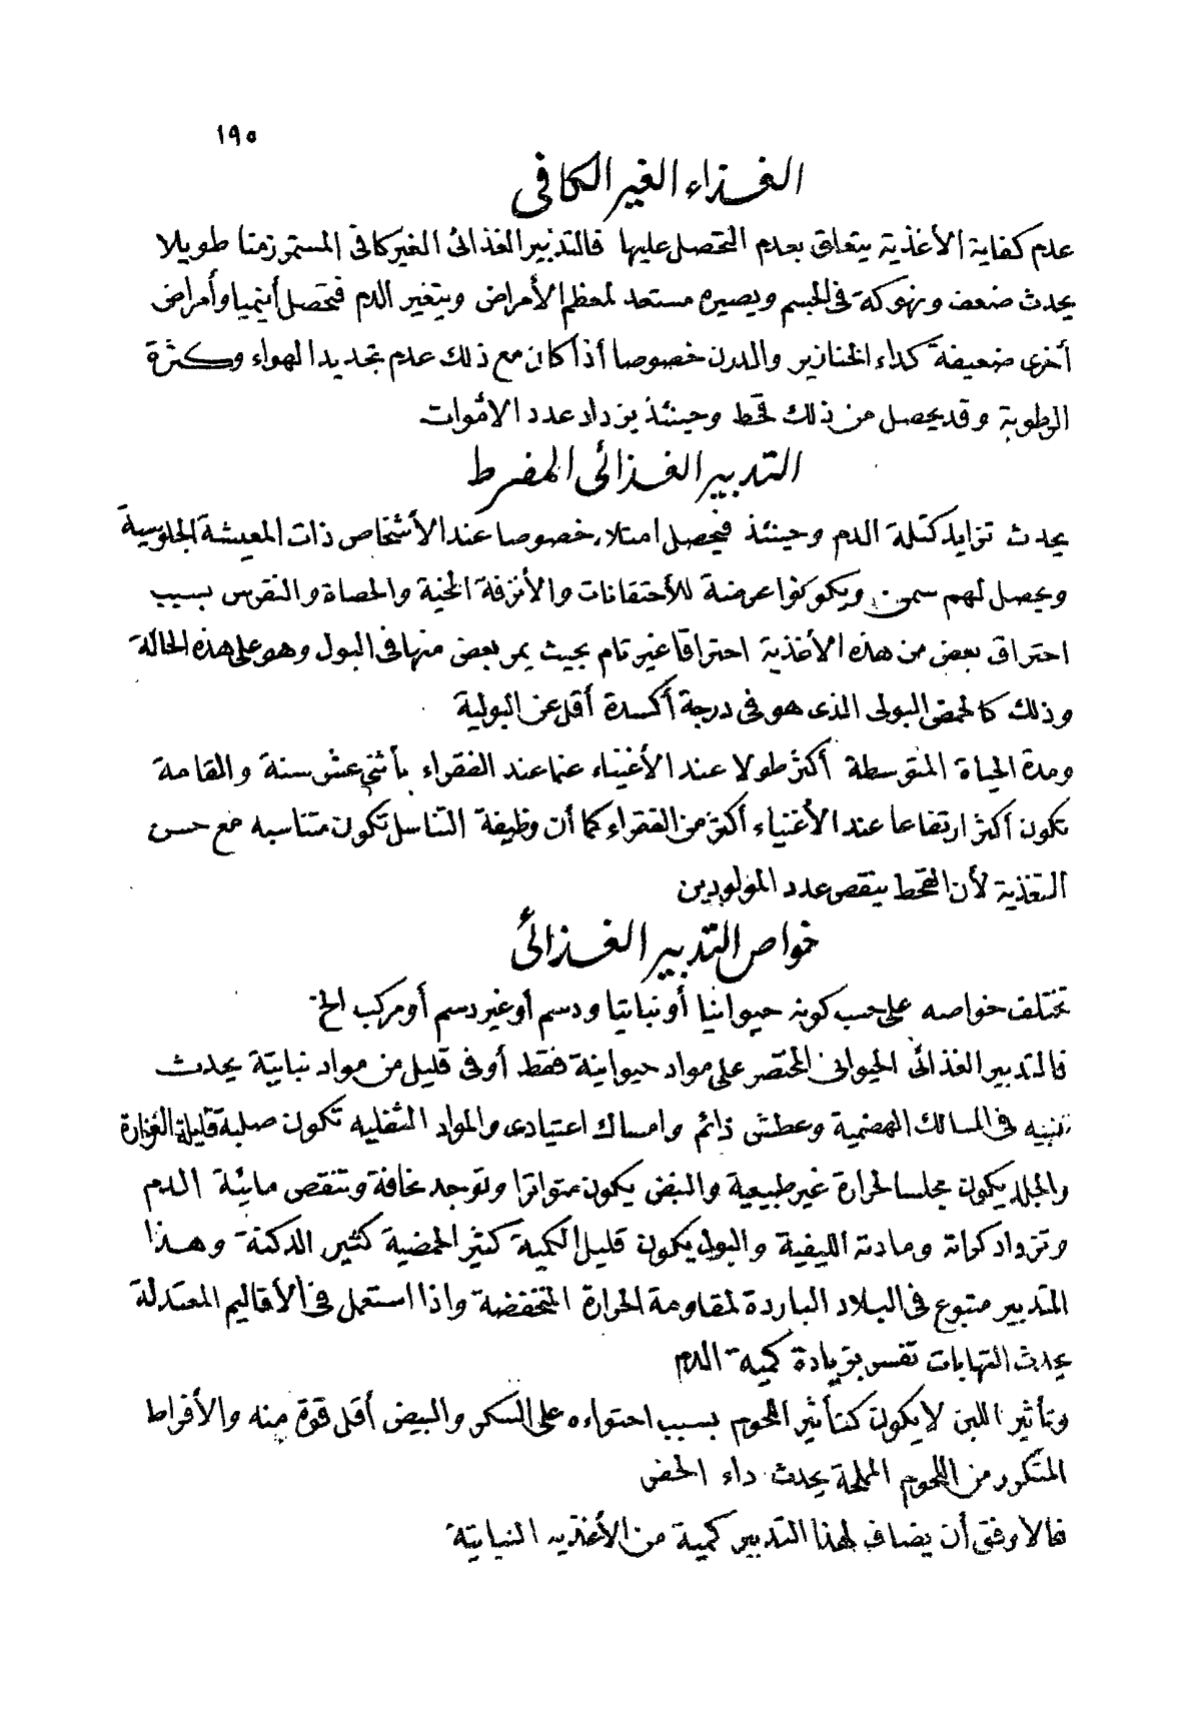 ١٩٥
الغذاء الغير الكافى
عدم كفاية الأغذية يتعلق بعدم التحصل عليها فالتدبير الغذائى الغير كافى المستمر زمنا طويلا
يحدث ضعف ونهوكة فى الجسم ويصيره مستعد لمعظم الأمراض ويتغير الدم فتحصل أينميا وأمراض
أخرى ضعيفة كداء الخنازير والدرن خصوصا أذا كان مع ذلك عدم تجديد الهواء وكثرة
الرطوبة وقد يحصل من ذلك قحط وحينئذ يزداد عدد الأموات
التدبير الغذائى المفرط
يحدث تزايد كتلة الدم وحينئذ فيحصل امتلاء خصوصا عند الأشخاص ذات المعيشة الجلوسية
ويحصل لهم سمن ويكونوا عرضة للأحتقانات والأنزفة المخية والحصاة والنقرس بسبب
احتراق بعض من هذه الأغذية احتراقا غير تام بحيث يمر بعض منها فى البول وهو على هذه الحالة
وذلك كالحمض البولى الذى هو فى درجة أكسدة أقل عن البولية
ومدة الحياة المتوسطة أكثر طولا عند الأغنياء عنها عند الفقراء بأثنى عشر سنة والقامة
تكون أكثر ارتفاعا عند الأغنياء أكثر من الفقراء كما أن وظيفة التناسل تكون متناسبه مع حسن
التغذية لأن القحط ينقص عدد المولودين
خواص التدبير الغذائى
تختلف خواصه على حسب كونه حيوانيا أو نباتيا ودسم أو غير دسم أو مركب الخ
فالتدبير الغذائى الحيوانى المختصر على مواد حيوانية فقط أو فى قليل من مواد نباتية يحدث
تنبيه فى المسالك الهضمية وعطش دائم وامساك اعتيادى والمواد الثفليه تكون صلبة قليلة الغزارة
والجلد يكون مجلسا لحرارة غير طبيعية والنبض يكون متواترا وتوجد نحافة وتنقص مائية الدم
وتزداد كراته ومادته الليفية والبول يكون قليل الكمية كثير الحمضية كثير الدكنة وهذا
التدبير متبوع فى البلاد الباردة لمقاومة الحرارة المنخفضة واذا استعمل فى الأقاليم المعتدلة
يحدث التهابات تفسر بزيادة كمية الدم
وتأثير اللبن لا يكون كتأثير اللحوم بسبب احتواءه على السكر والبيض أقل قوة منه والأفراط
المتكرر من اللحوم المملحة يحدث داء الحفر
فالاوفق أن يضاف لهذا التدبير كمية من الأغذيه النباتية